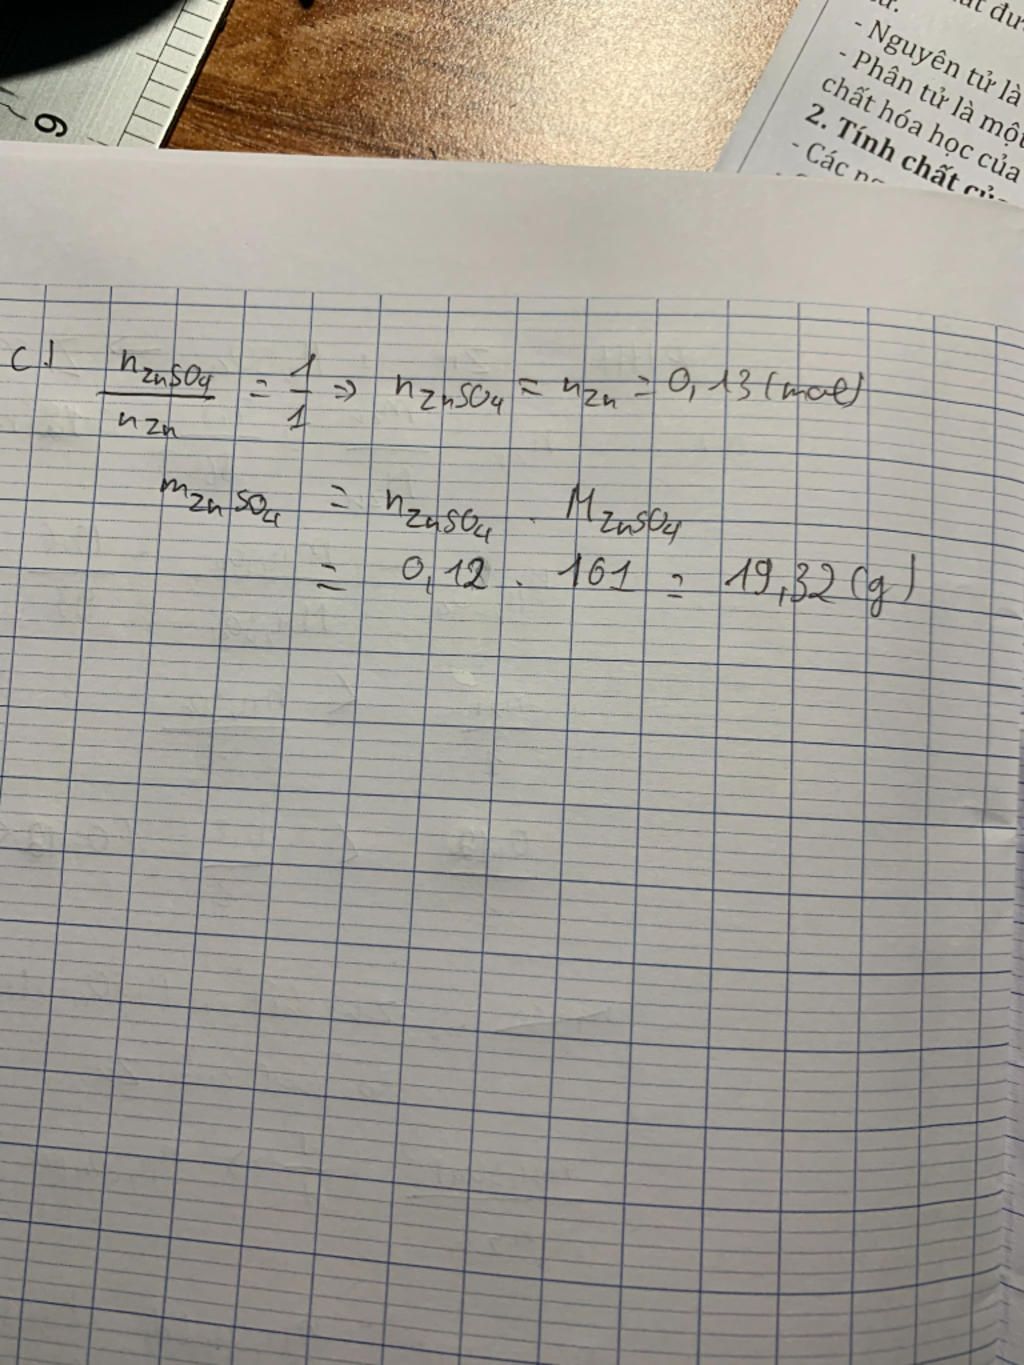 6
ử.
- Nguyên tử là
- Phân tử là một
chất hóa học của
2. Tính chất của
- Các
c) n ZnSO4 / n Zn = 1/1 ⇒ n ZnSO4 = n Zn = 0,13 (mol)
m ZnSO4 = n ZnSO4 . M ZnSO4
= 0,12 . 161 = 19,32 (g)